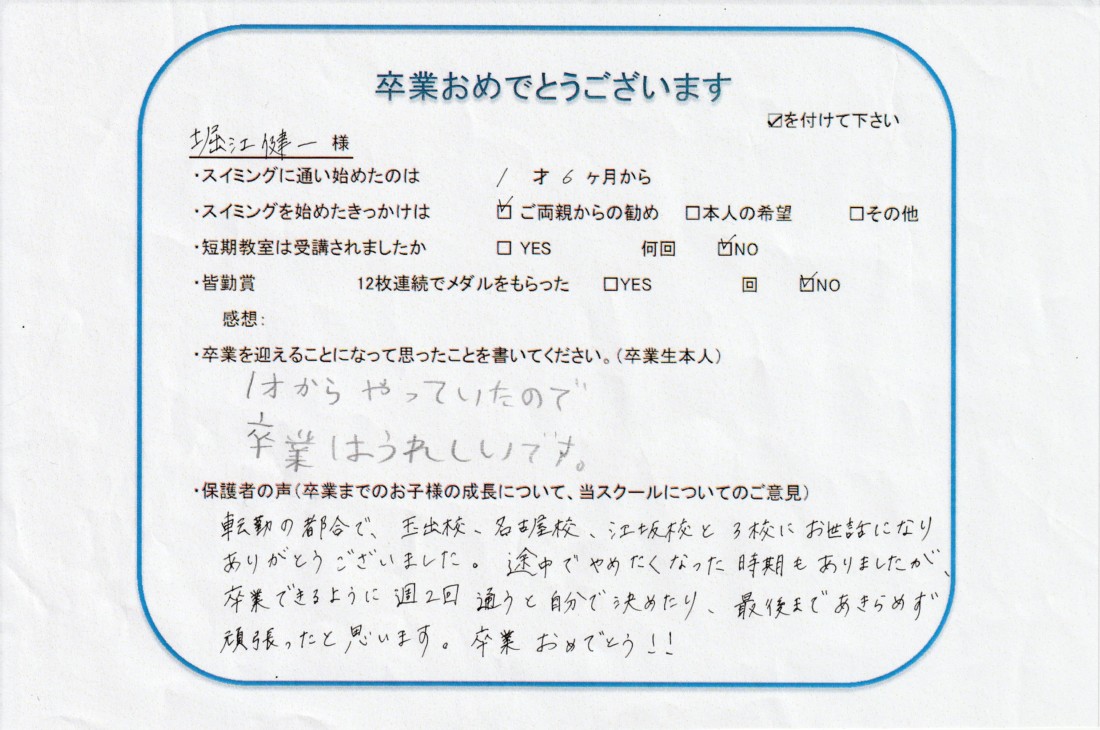 卒業おめでとうございます
☑を付けて下さい
堀江健一 様
・スイミングに通い始めたのは 1 才 6 ヶ月から
・スイミングを始めたきっかけは ☑ ご両親からの勧め □本人の希望 □その他
・短期教室は受講されましたか □ YES 何回 ☑NO
・皆勤賞 12枚連続でメダルをもらった □YES 回 ☑NO
感想:
・卒業を迎えることになって思ったことを書いてください。(卒業生本人)
1才からやっていたので
卒業はうれしいです。
・保護者の声(卒業までのお子様の成長について、当スクールについてのご意見)
転勤の都合で、玉出校、名古屋校、江坂校と3校にお世話になり
ありがとうございました。途中でやめたくなった時期もありましたが、
卒業できるように週2回通うと自分で決めたり、最後まであきらめず
頑張ったと思います。卒業おめでとう!!